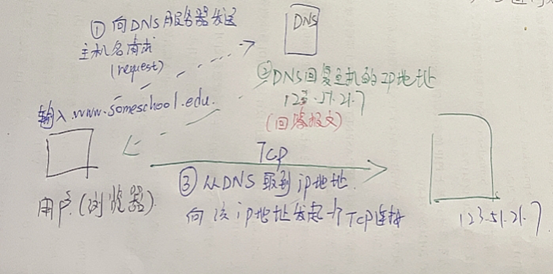 ① 向DNS服务器发送
主机名请求
(request)
DNS
② DNS回复主机的IP地址
123.51.21.7
(回答报文)
输入www.someschool.edu.
TCP
③ 从DNS 取到 ip地址.
向该ip地址发起一个TCP连接
用户(浏览器)
123.51.21.7